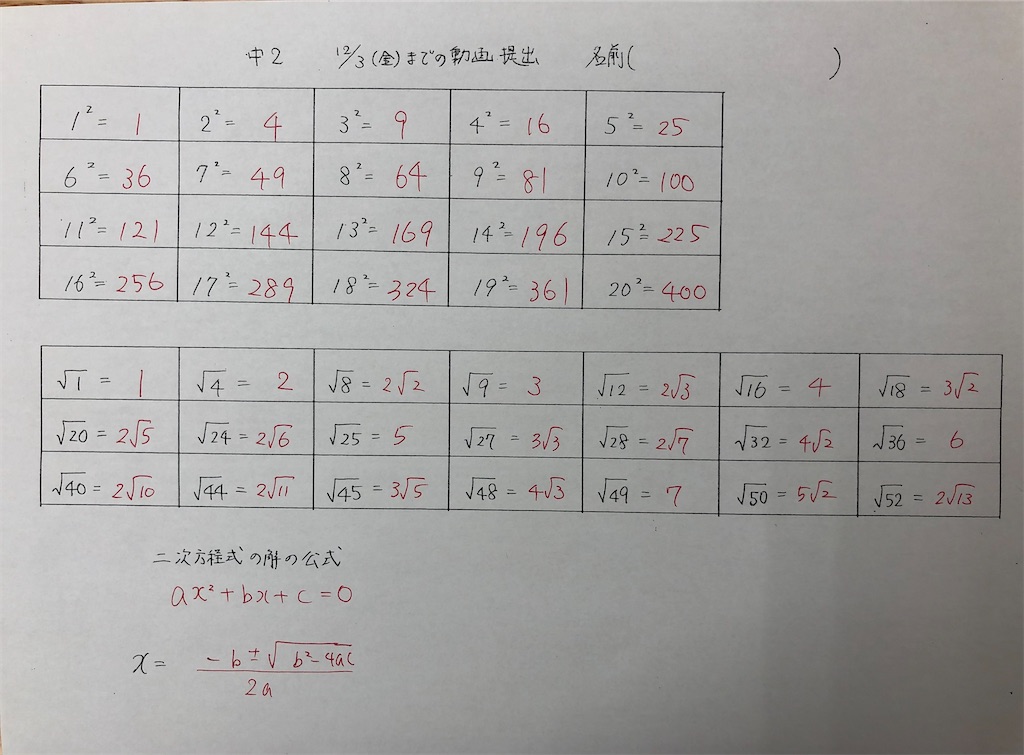 中2 12/3(金)までの動画提出 名前( )
1²= 1 2²= 4 3²= 9 4²= 16 5²= 25
6²= 36 7²= 49 8²= 64 9²= 81 10²= 100
11²= 121 12²= 144 13²= 169 14²= 196 15²= 225
16²= 256 17²= 289 18²= 324 19²= 361 20²= 400
√1 = 1 √4 = 2 √8 = 2√2 √9 = 3 √12 = 2√3 √16 = 4 √18 = 3√2
√20 = 2√5 √24 = 2√6 √25 = 5 √27 = 3√3 √28 = 2√7 √32 = 4√2 √36 = 6
√40 = 2√10 √44 = 2√11 √45 = 3√5 √48 = 4√3 √49 = 7 √50 = 5√2 √52 = 2√13
二次方程式の解の公式
ax²+bx+c=0
x= -b±√b²-4ac
2a